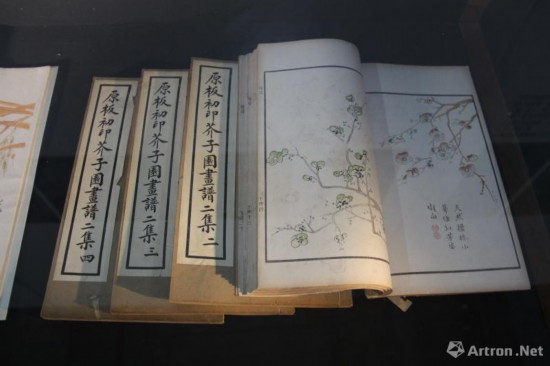 原板初印芥子園畫譜二集四
原板初印芥子園畫譜二集三
原板初印芥子園畫譜二集二
Artron.Net